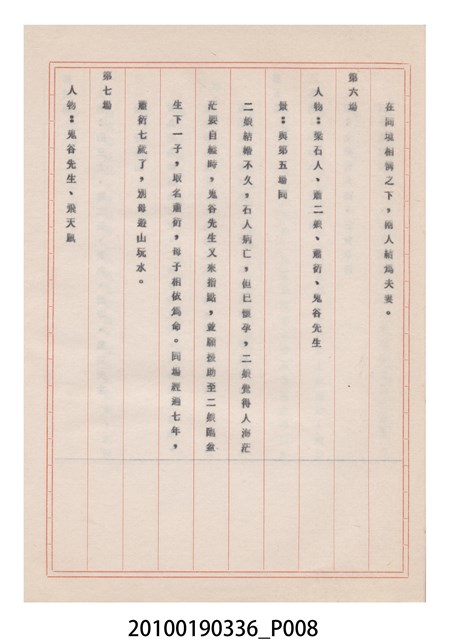 在同境相憐之下，兩人結為夫妻。
第六場
人物：梁石人、蕭二娘、蕭衍、鬼谷先生
景：與第五場同
二娘結婚不久，石人病亡，但已懷孕，二娘覺得人海茫
茫要自縊時，鬼谷先生又來指點，並願扶助至二娘臨盆
生下一子，取名蕭衍，母子相依為命。同場經過七年，
蕭衍七歲了，別母遊山玩水。
第七場
人物：鬼谷先生、飛天鼠
20100190336_P008